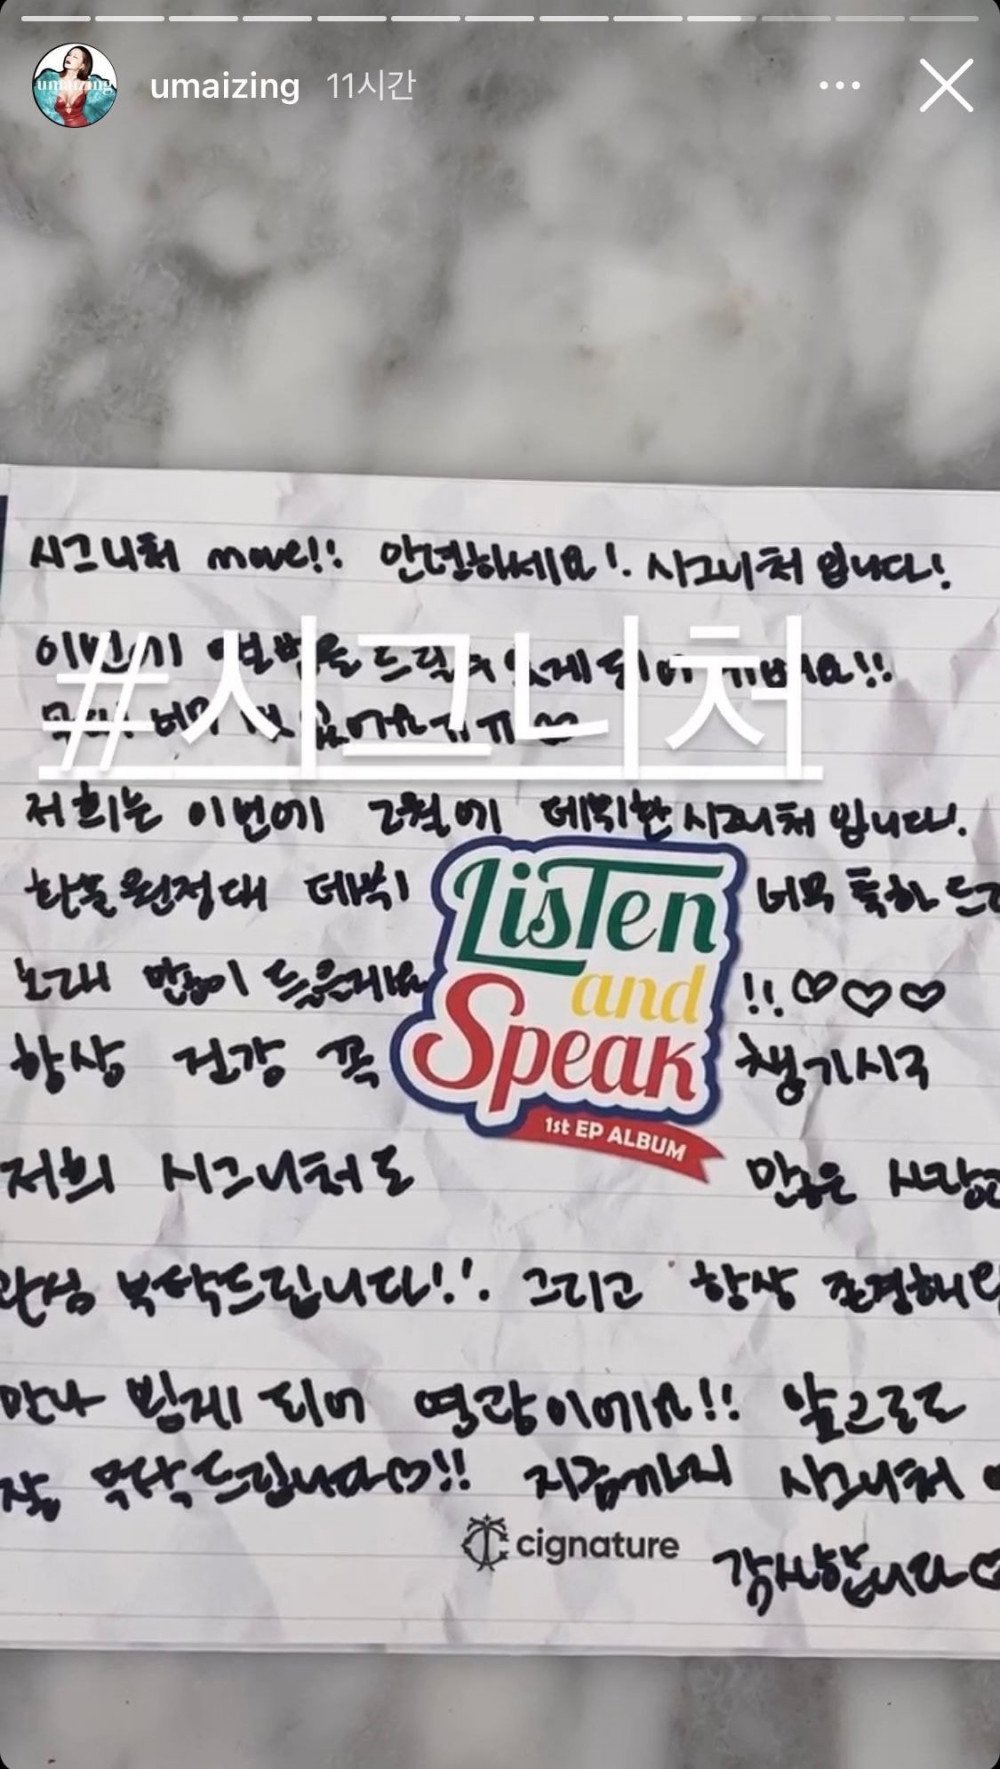 umaizing 11시간
시그니처 move!! 안녕하세요! 시그니처 입니다!
#시그니처
저희는 이번에 2월에 데뷔한 시그니처 입니다.
데뷔 너무 축하 드
노래 많이 들을게요 !! ♡♡♡
항상 건강 꼭 챙기시구
저희 시그니처도 많은 사랑
관심 부탁드립니다!! 그리고 항상 존경해
만나 뵙게 되어 영광이에요!! 앞으로도
잘 부탁드립니다♡!! 지금까지 시그니처
감사합니다♡
Listen
and
Speak
1st EP ALBUM
cignature